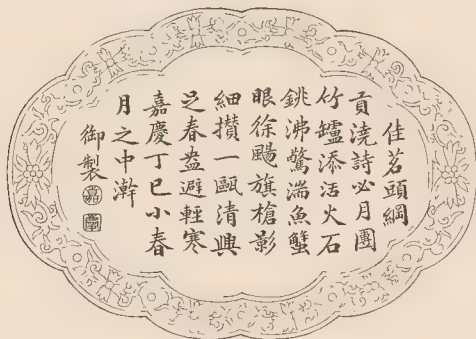 佳茗頭綱
貢澆詩必月團
竹罏添活火石
銚沸驚湍魚蟹
眼徐颺旗槍影
細攢一甌清興
足春盎避輕寒
嘉慶丁巳小春
月之中澣
御製 嘉